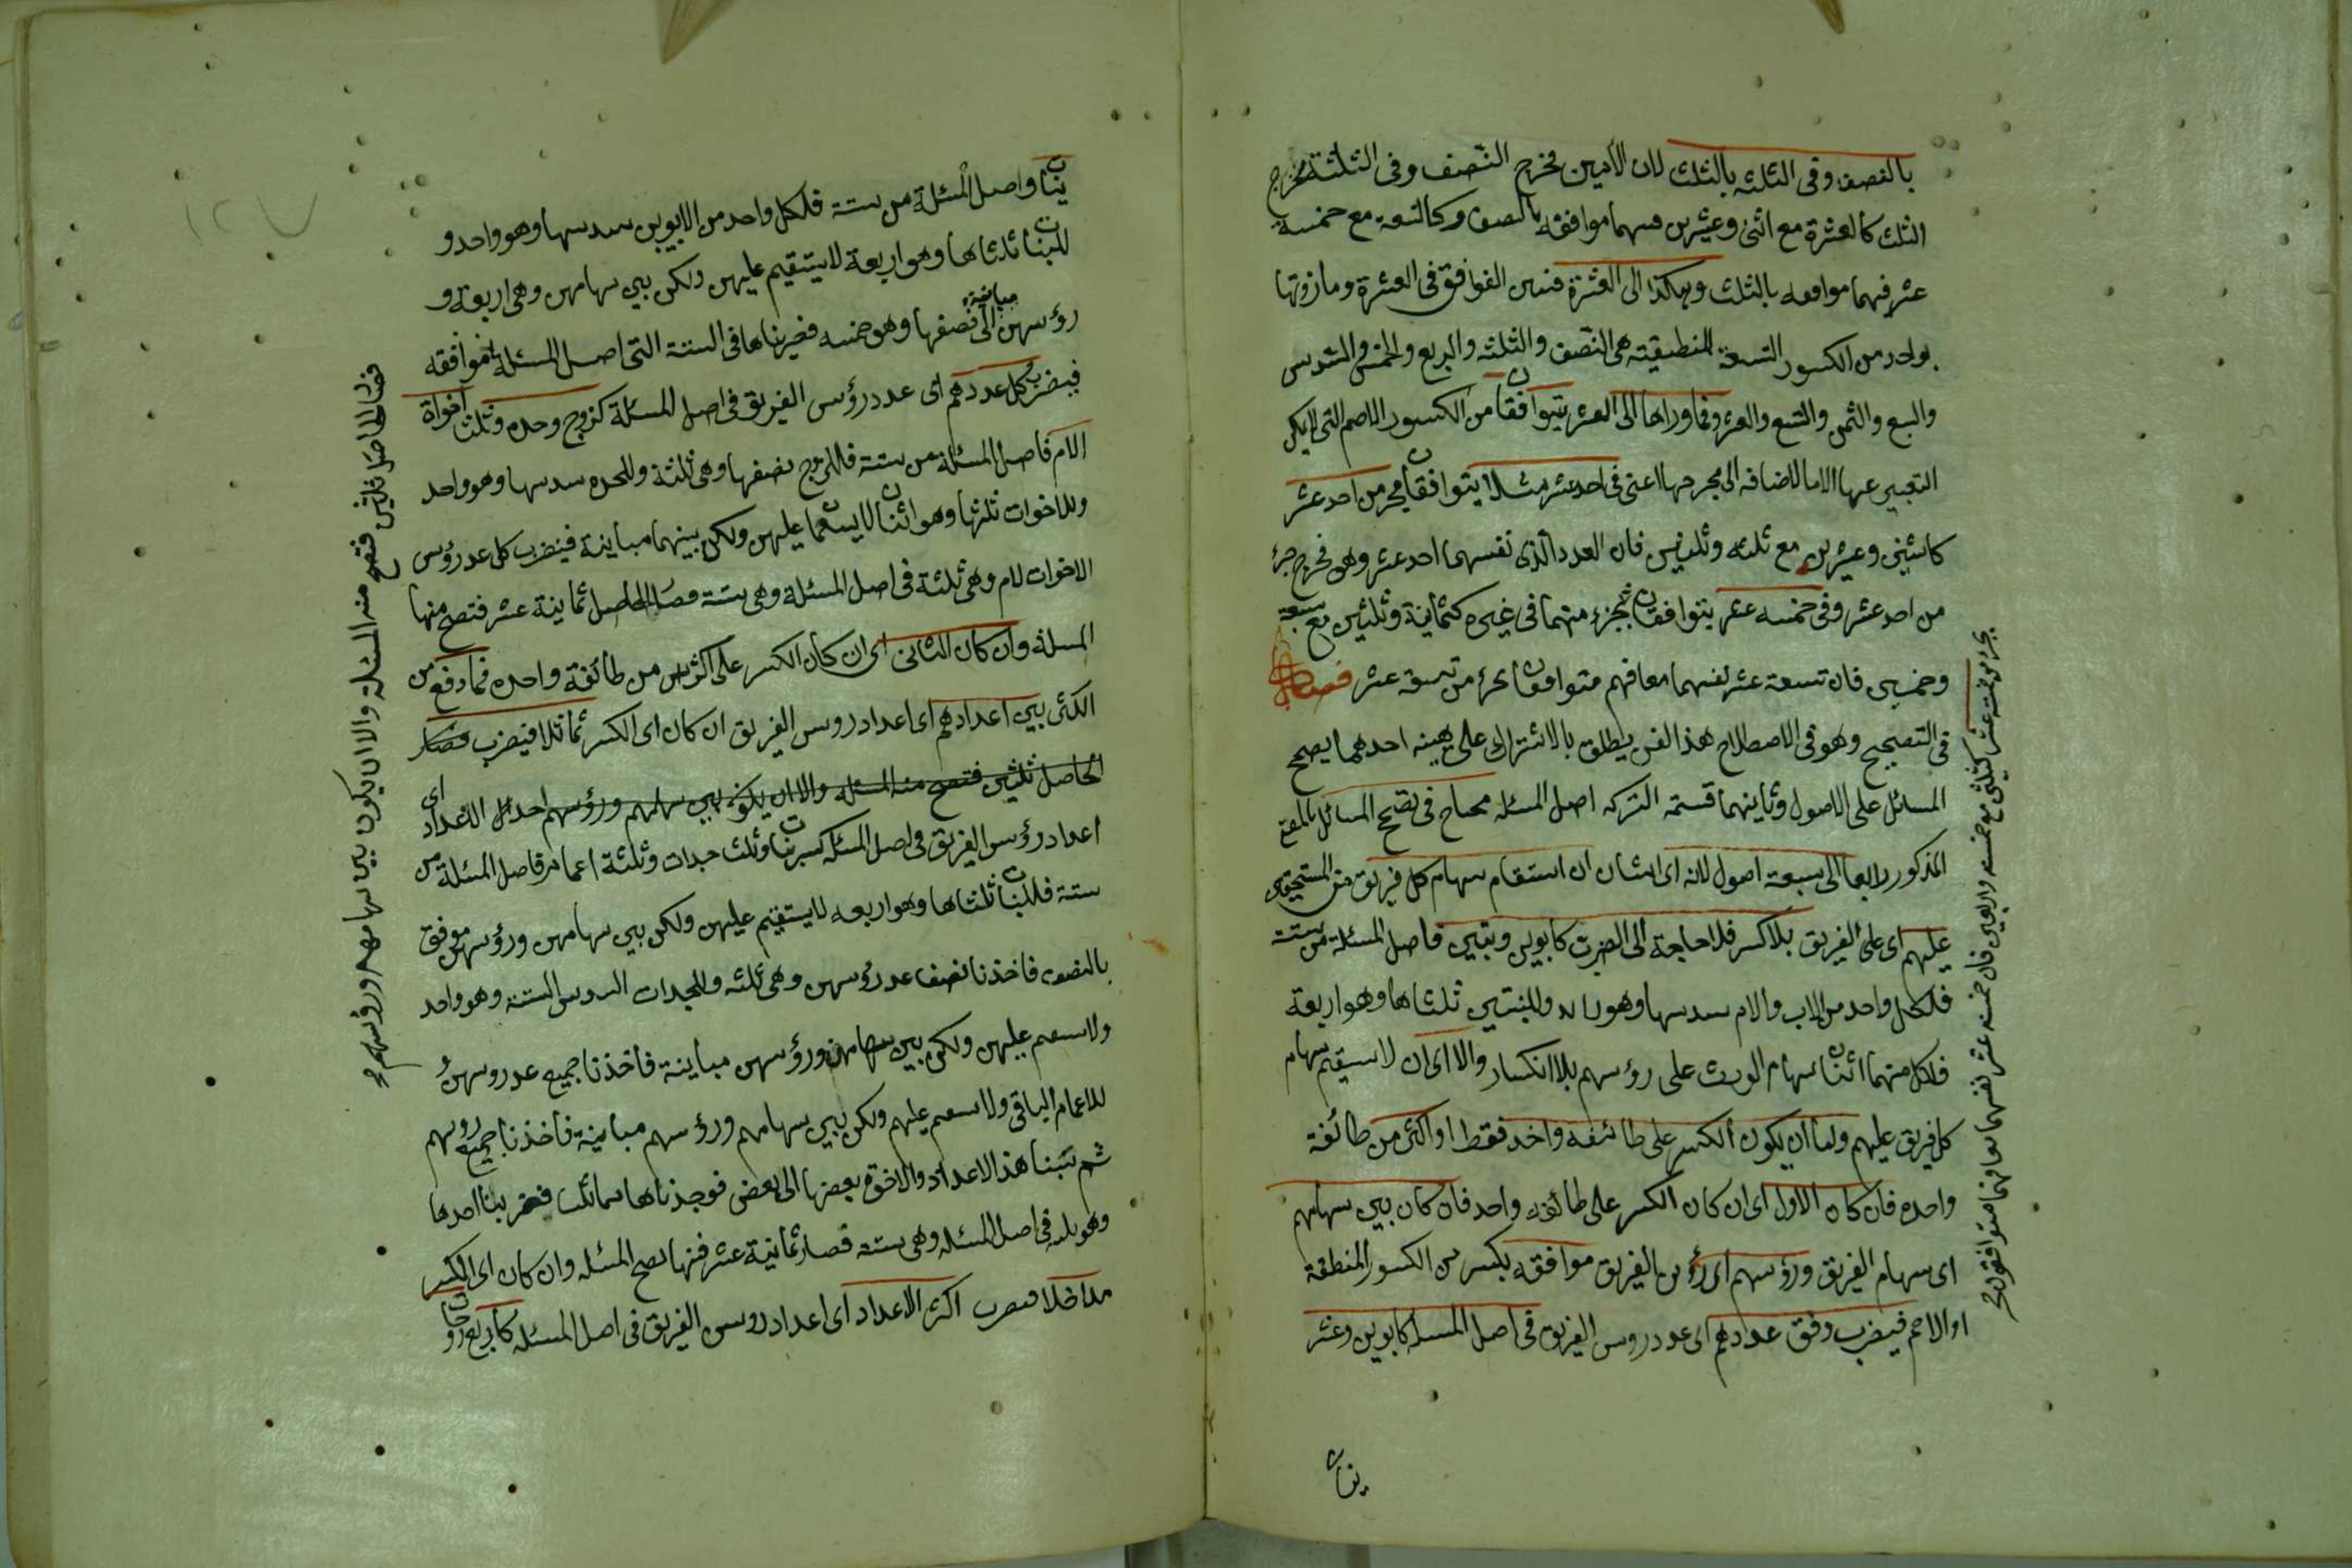 بالنصف وفى الثلثه بالثلث لان الاثنين مخرج النصف وفى الثلثة مخرج
الثلث كالعشرة مع اثنى وعشرين فبينهما موافقه بالنصف وكالتسعه مع خمسة
عشر فبينهما موافقه بالثلث وهكذا الى العشرة التوافق فى العشرة وما
بواحد من الكسور التسعة المنطقيته هى النصف والثلثه والربع والخمس والسدس
والسبع والثمن والتسع والعشر وفما وراها الى العشر يتوافقان من الكسور الاصم التى لا يمكن
التعبير عنها الا بالاضافه الى مخرجها اعنى فى احد عشر مثلا يتوافقان من احد عشر
كاثنين وعشرين مع ثلثه وثلثين فان العدد الذى احد عشر وهى مخرج جزء
من احد عشر وفى خمسه عشر يتوافقان بجزء منهما فى غيره كثمانية وثلثين مع سبعة
وخمسين فان تسعة عشر متوافقان من تسعة عشر فصل
فى التصحيح وهو فى الاصطلاح هذا الفن يطلق بالاشتراك على احدهما يصحح
المسائل على الاصول وثانيهما قسمة التركه اصل المسئله محتاج فى تصحيح المسائل
المذكور الى سبعة اصول لانه اى الشان ان استقام سهام كل فريق من المستحقين
عليهم اى على الفريق بلا كسر فلا حاجة الى الضرب كابوين وبنتين فاصل المسئلة من ستة
فلكل واحد من الاب والام سدسها وهو وللبنتين ثلثاها وهو اربعة
فلكل منهما اثنان سهام الورث على رؤسهم بلا انكسار والا اى ان لا يستقيم سهام
كل فريق عليهم ان يكون الكسر على طائفه واحد فقط او اكثر من طائفة
واحده فان كان الاول اى ان كان الكسر على طائفه واحد فان كان بين سهامهم
اى سهام الفريق ورؤسهم اى رؤس الفريق موافقه بكسر من الكسور المنطقة
او الاصم فيضرب وفق عددهم اى عدد روس الفريق فى اصل المسئله كابوين وعشر
بنات
بجزء من خمسه عشر كثلثين مع خمسه واربعين فان خمسه عشر متوافقون
بنات واصل المسئلة من ستة فلكل واحد من الابوين سدسها وهو واحد و
للبنات ثلثاها وهو اربعة لا يستقيم عليهن ولكن بين سهامهن وهى اربعة و
رؤسهن الى نصفها وهو خمسه فضربناها فى الستة التى اصل المسئلة موافقه
مباينة
فيضرب كل عددهم اى عدد رؤس الفريق فى اصل المسئلة كزوج وجده وثلث اخوات
الام فاصل المسئلة من ستة فللزوج نصفها وهى ثلثة وللجده سدسها وهو واحد
وللاخوات ثلثها وهو اثنان عليهن ولكن بينهما مباينة فيضرب كل عدد رؤس
الاخوات لام وهى ثلثة فى اصل المسئلة وهى ستة الحاصل ثمانية عشر فتصح منها
المسئلة وان كان الثانى اى ان كان الكسر على اكثر من طائفة واحده
بين اعدادهم اى اعداد روس الفريق ان كان اى الكسر تماثلا فيضرب فصار
الحاصل ثلثين فتصح منه المسئله والا ان يكون بين سهامهم ورؤسهم احد الاعداد اى
اعداد رؤس الفريق فى اصل المسئلة كست بنات وثلث جدات وثلثة اعمام فاصل المسئلة من
ستة فللبنات ثلثاها وهو اربعه لا يستقيم عليهن ولكن بين سهامهن ورؤسهن موفق
بالنصف فاخذنا نصف عدد رؤسهن وهى ثلثه وللجدات السدس الستة وهو واحد
ولا عليهن ولكن بين سهامهن ورؤسهن مباينة فاخذنا جميع عدد روسهن
للاعمام الباقى ولا عليهم ولكن بين سهامهم ورؤسهم مباينة فاخذنا جميع روسهم
ثم نسبنا هذا الاعداد بعضها الى بعض فوجدناها فضربنا احدها
وهو فى اصل المسئله وهى ستة فصار ثمانية عشر فمنها تصح المسئله وان كان اى الكسر
مداخلا فيضرب اكثر الاعداد اى اعداد روس الفريق فى اصل المسئله كاربع زوجات
فصار الحاصل ثلثين فتصح منه المسئلة والا ان يكون بين سهامهم ورؤسهم
١٢٧